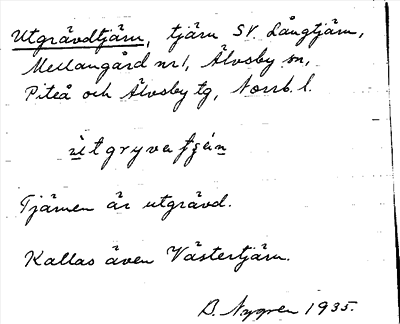 Utgrävdtjärn, tjärn SV. Långtjärn,
Mellangård nr 1, Älvsby sn,
Piteå och Älvsby tg, Norrb. l.
ùtgryvatjän
Tjärnen är utgrävd.
Kallas även Västertjärn.
B. Nygren 1935.